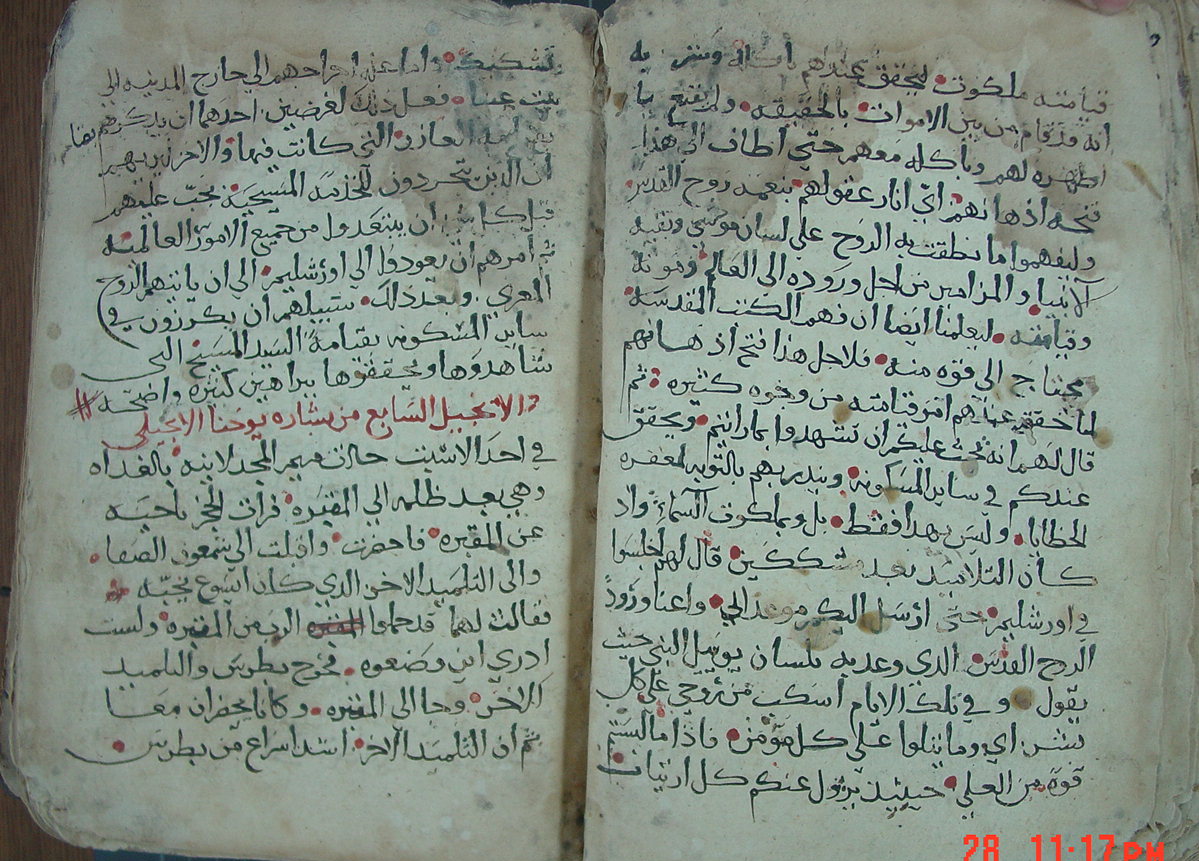 قيامته ملكوت ليحقق عندهم باكله وشربه
انه قد قام من بين الاموات بالحقيقه ولم يقنع با
ظهوره لهم وباكله معهم حتى اضاف الى هذا
فتحه اذهانهم اي انار عقولهم بنعمه روح القدس
وليفهموا ما نطقت به الروح علي لسان موسي وبقيه
الانبيا والمزامير من اجل وروده الى العالم وموته
وقيامته ليعلمنا ايضا ان فهم الكتب المقدسه
يحتاج الي قوه منه فلاجل هذا فتح اذهانهم
لما تحقق عندهم امر قيامته من وجوه كثيره ثم
قال لهم انه يجب عليكم ان تشهدوا بما رايتم ويحقق
عندكم في ساير المسكونه وينذر بهم بالتوبه لمغفره
الخطايا وليس بهذا فقط بل وبملكوت السماء واذ
كان التلاميذ بعد متشككين قال لهم اجلسوا
في اورشليم حتى ارسل اليكم موعد ابي واعنا ورود
الروح القدس الذي وعد به بلسان يوييل النبي حيث
يقول وفي تلك الايام اسكب من روحي علي كل
بشر اي وما يتلوا علي كل مومن فاذا ما لبستم
قوة من العلي حينيذ يزول عنكم كل ارتياب
تشكك واما علة اخراجهم الي خارج المدينه الي
بيت عنيا فعل ذلك لغرضين احدهما ان يذكرهم بقيا
العازر التي كانت فيها والاخر ليريهم
ان الذين يتجردون للخدمة المسيحية يجب عليهم
قبل كل شي ان يبتعدوا من جميع الامور العالميه
ثم امرهم ان يعودوا الي اورشليم الي ان ياتيهم الروح
المعزي وبعد ذلك سبيلهم ان يكرزون في
ساير المسكونه بقيامة السيد المسيح التي
شاهدوها وتحققوها ببراهين كثيره واضحه
الانجيل السابع من بشاره يوحنا الانجيلي
في احد الاسبت جات مريم المجدلانيه بالغداه
وهي بعد ظلمه الي المقبره فرات الحجر ناحيه
عن المقبره فاحضرت واقبلت الي شمعون الصفا
والى التلميد الاخر الدي كان ايسوع يحبه
فقالت لهما قد حملوا المقبره الرب من المقبره ولست
ادري اين وضعوه فخرج بطرس والتلميد
الاخر وجا الي المقبره وكانا يحضران معا
ثم ان التلميد الاخر اشتد اسراع من بطرس
28 11:17 PM